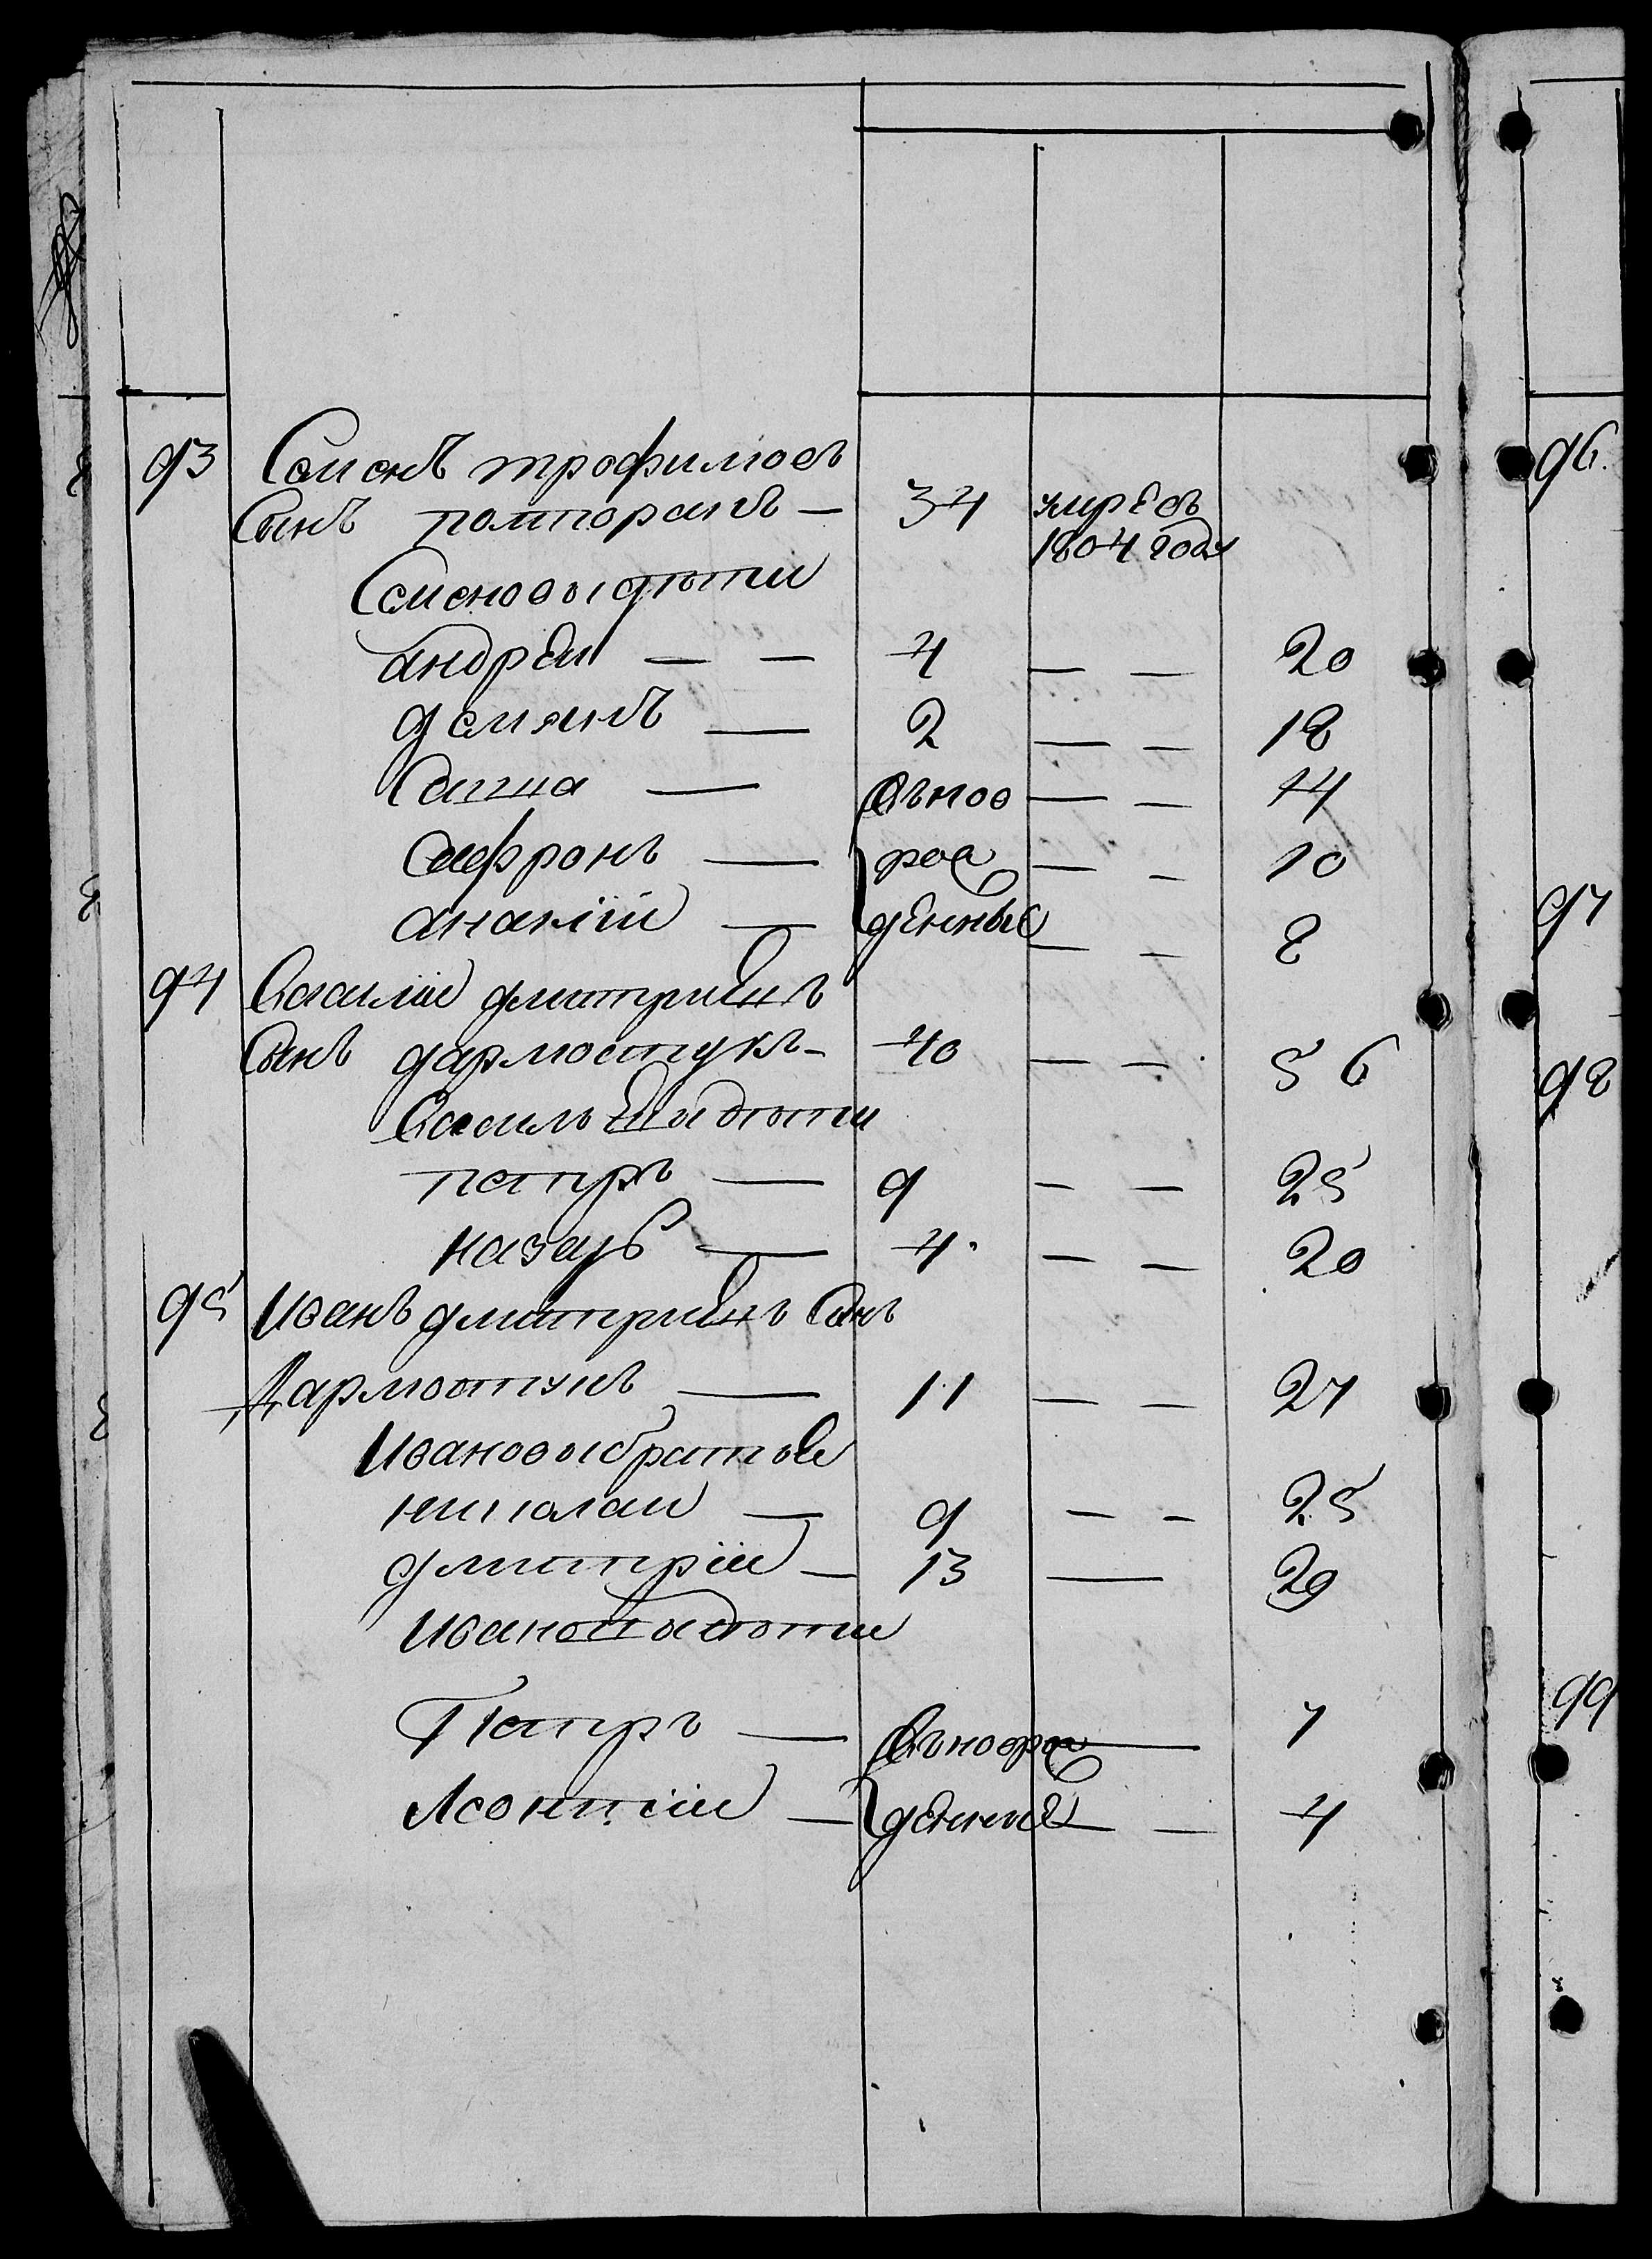 93 Семенъ трофимовъ
сынъ полторакъ — 34 умре въ
1804 году
Семеновы дѣти
андреи — — 4 — — 20
демянъ — 2 — — 18
Савка — въ но — — 14
Сафронъ — рож — — 10
ананіи — денные — — 8
94 Василіи дмитриевъ
сынъ дармостукъ — 40 — — 56
Васильевы дѣти
петръ — 9 — — 25
назаръ — 4 — — 20
95 Иванъ дмитриевъ сынъ
Дармостукъ — 11 — — 27
Ивановы братья
николаи — 9 — — 25
дмитріи — 13 — 29
Ивановы дѣти
Петръ — вънорож — 7
Леонтіи — денные — — 4
96.
97
98
99